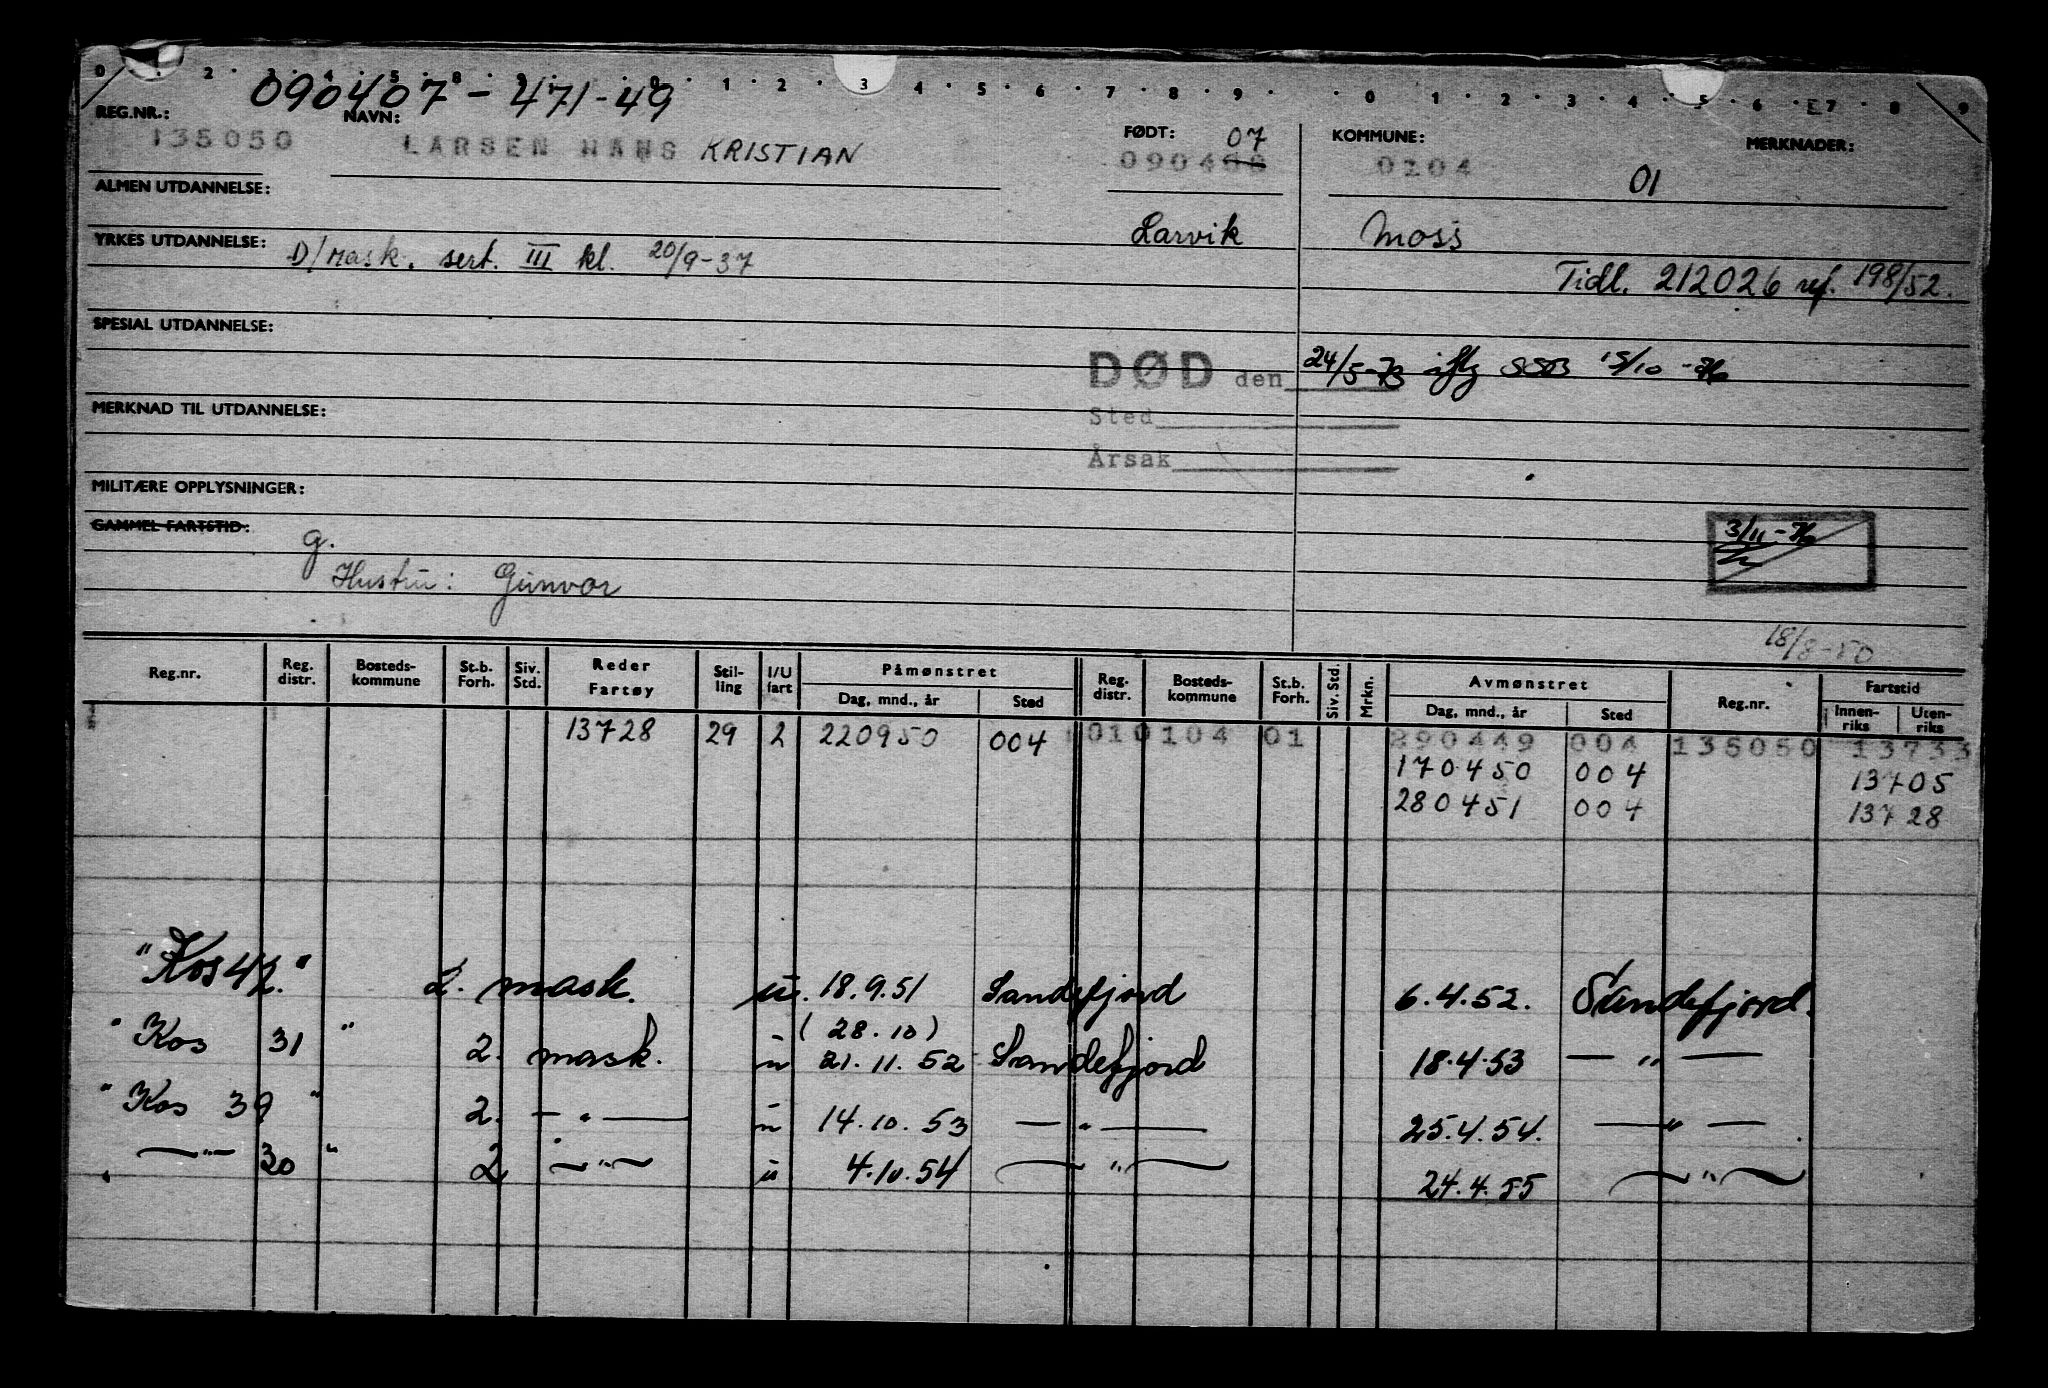 0 1 2 3 4 5 6 7 8 9 0 1 2 3 4 5 6 7 8 9 0 1 2 3 4 5 6 E7 8 9
090407-471-49
REG.NR.: NAVN: FØDT: 07 KOMMUNE: MERKNADER:
135050 LARSEN HANS KRISTIAN 090408 0104 01
ALMEN UTDANNELSE:
Larvik Moss
YRKES UTDANNELSE: D/Mask. sert. III kl. 20/9-37
Tidl. 212026 ref. 198/52.
SPESIAL UTDANNELSE:
DØD den 24/5-73 iflg SSB 15/10-76
MERKNAD TIL UTDANNELSE:
Sted
Årsak
MILITÆRE OPPLYSNINGER:
GAMMEL FARTSTID:
3/11-76
g.
Hustru: Gunvor
18/8-50
Reg.nr. Reg. distr. Bosteds-kommune St.b. Forh. Siv. Std. Reder Fartøy Stil-ling I/U fart Påmønstret Dag, mnd., år Sted Reg. distr. Bosteds-kommune St.b. Forh. Siv. Std. Mrkn. Avmønstret Dag, mnd., år Sted Reg.nr. Fartstid Innen-riks Uten-riks
13728 29 2 220950 004 010104 01 290449 004 135050 13733
170450 004 13705
280451 004 13728
"Kos 47." 2. mask. u. 18.9.51 Sandefjord 6.4.52. Sandefjord.
(28.10)
"Kos 31" 2. mask. u 21.11.52 Sandefjord 18.4.53 — " —
"Kos 39" 2. — " — u 14.10.53 — " — 25.4.54. — " —
— " — 30 " 2 — " — u 4.10.54 — " — 24.4.55 — " —